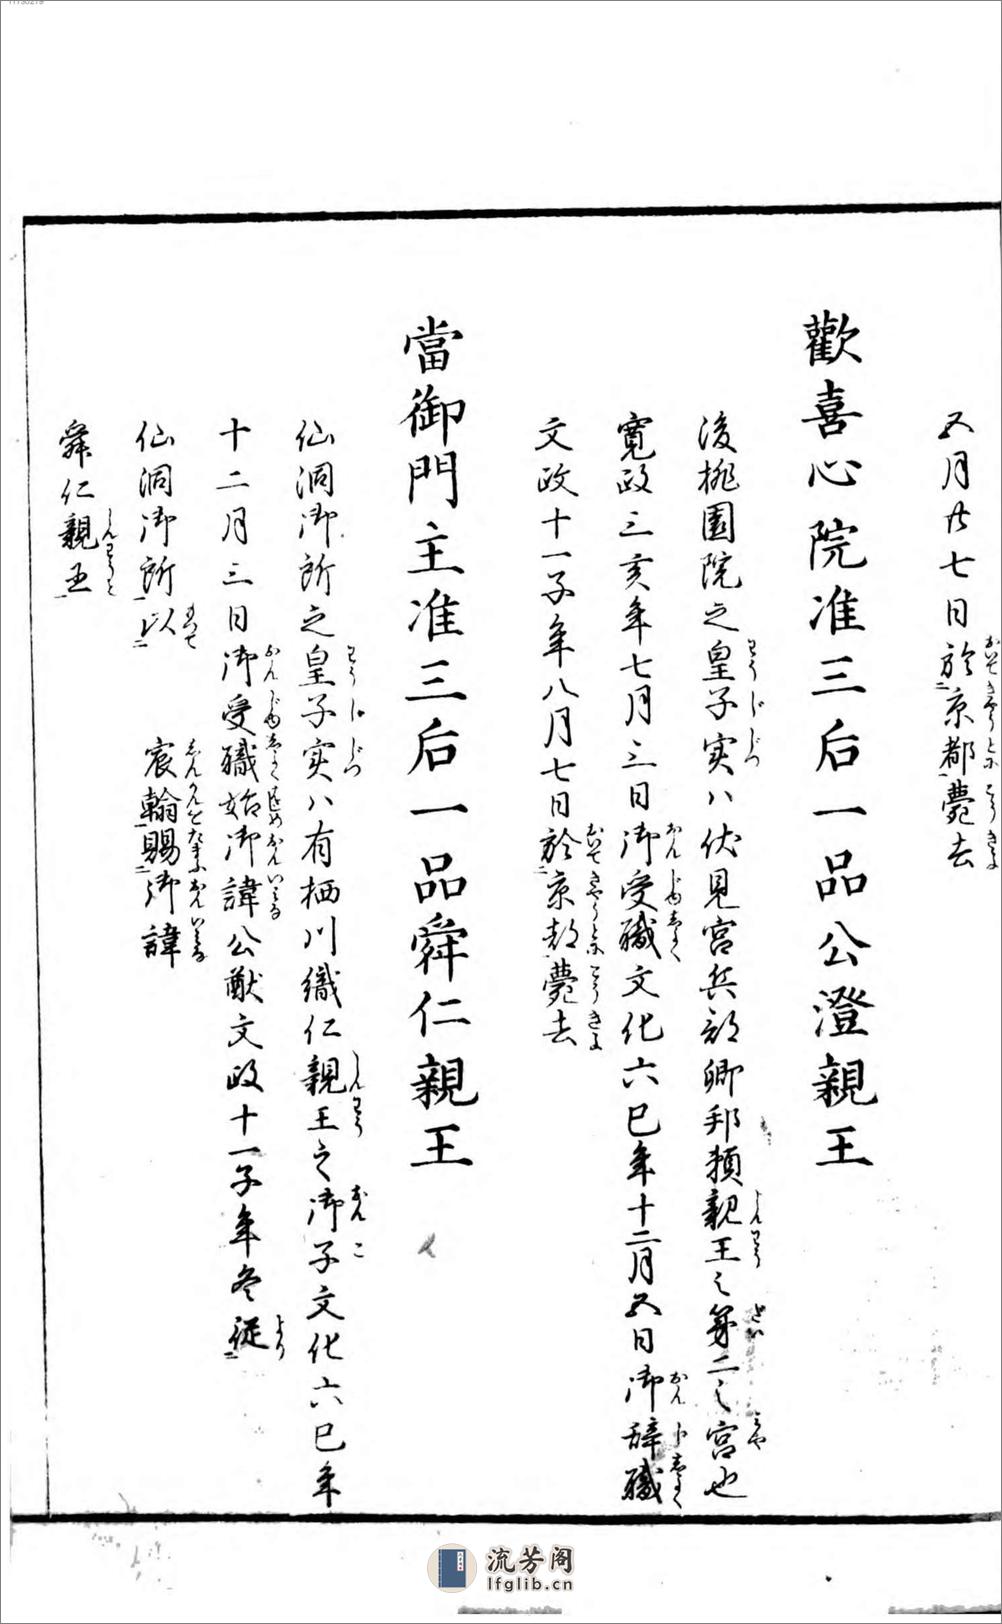 五月廿七日於京都薨去
歡喜心院准三后一品公澄親王
後桃園院之皇子実ハ伏見宮兵部卿邦頼親王之第二之宮也
寛政三亥年七月三日御受職文化六巳年十二月五日御辞職
文政十一子年八月七日於京都薨去
當御門主准三后一品舜仁親王
仙洞御所之皇子実ハ有栖川織仁親王之御子文化六巳年
十二月三日御受職始御諱公猷文政十一子年冬従
仙洞御所以 宸翰賜御諱
舜仁親王
流芳阁
lfglib.cn